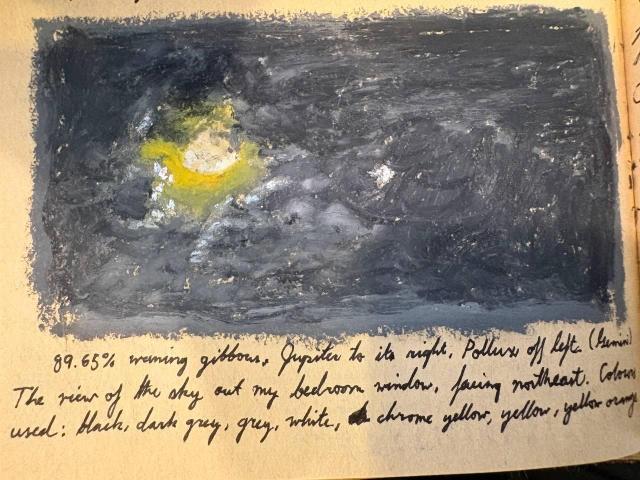 89.65% waning gibbous, Jupiter to its right, Pollux off left. (Gemini)
The view of the sky out my bedroom window, facing northeast. Colours
used: black, dark grey, grey, white, chrome yellow, yellow, yellow orange